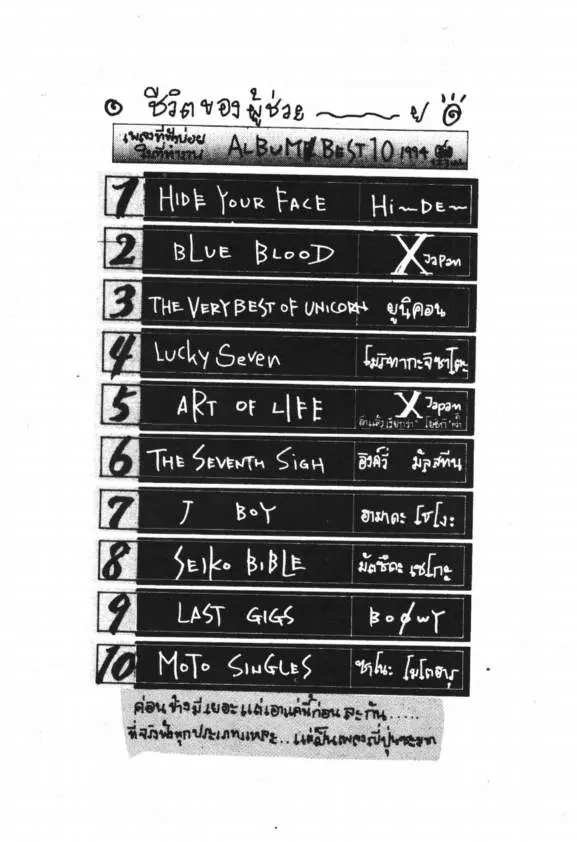 ชีวิตของผู้ช่วย
เพลงที่ฟังบ่อย
ในที่ทำงาน
ALBUM BEST 10 1994
1 HIDE YOUR FACE Hi~DE~
2 BLUE BLOOD X Japan
3 THE VERY BEST OF UNICORN ยูนิคอน
4 Lucky Seven โมริทากะจิซาโตะ
5 ART OF LIFE X Japan
6 THE SEVENTH SIGH อิงค์วี่ มัลสทีน
7 J BOY ฮามาดะ โชโงะ
8 SEIKO BIBLE มัตซึดะ เซโกะ
9 LAST GIGS BOØWY
10 MOTO SINGLES ซาโนะ โมโตฮารุ
ค่อนข้างมีเยอะแต่เอาแค่นี้ก่อนละกัน.....
ที่จริงฟังทุกประเภทแหละ...แต่เป็นเพลงญี่ปุ่นซะมาก